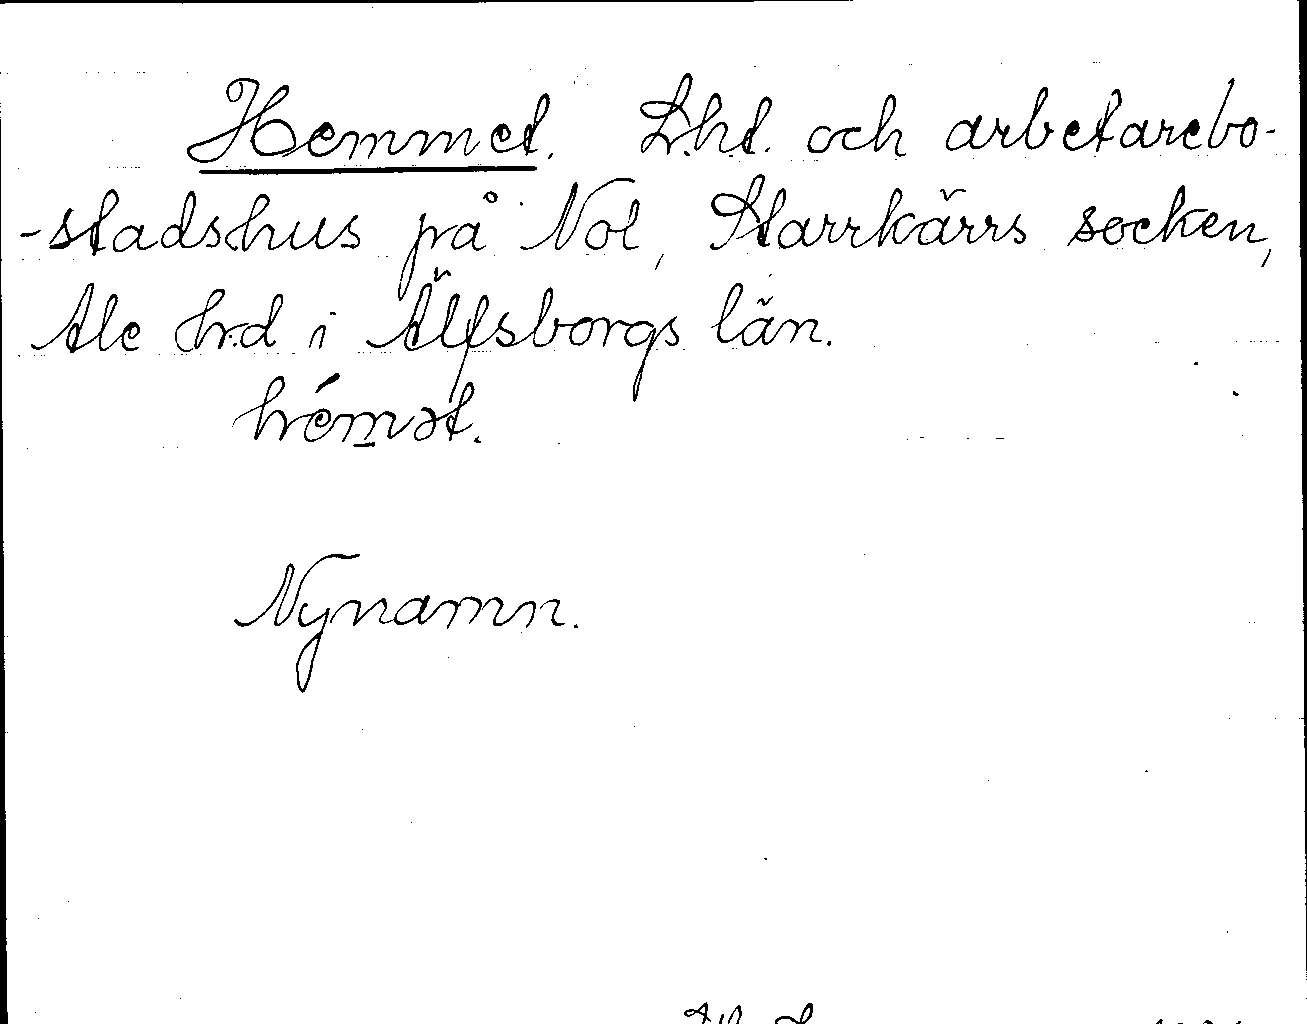 Hemmet. L.h.t. och arbetarebo-
-stadshus på Nol, Starrkärrs socken,
Ale hrd i Älfsborgs län.
hémət.
Nynamn.